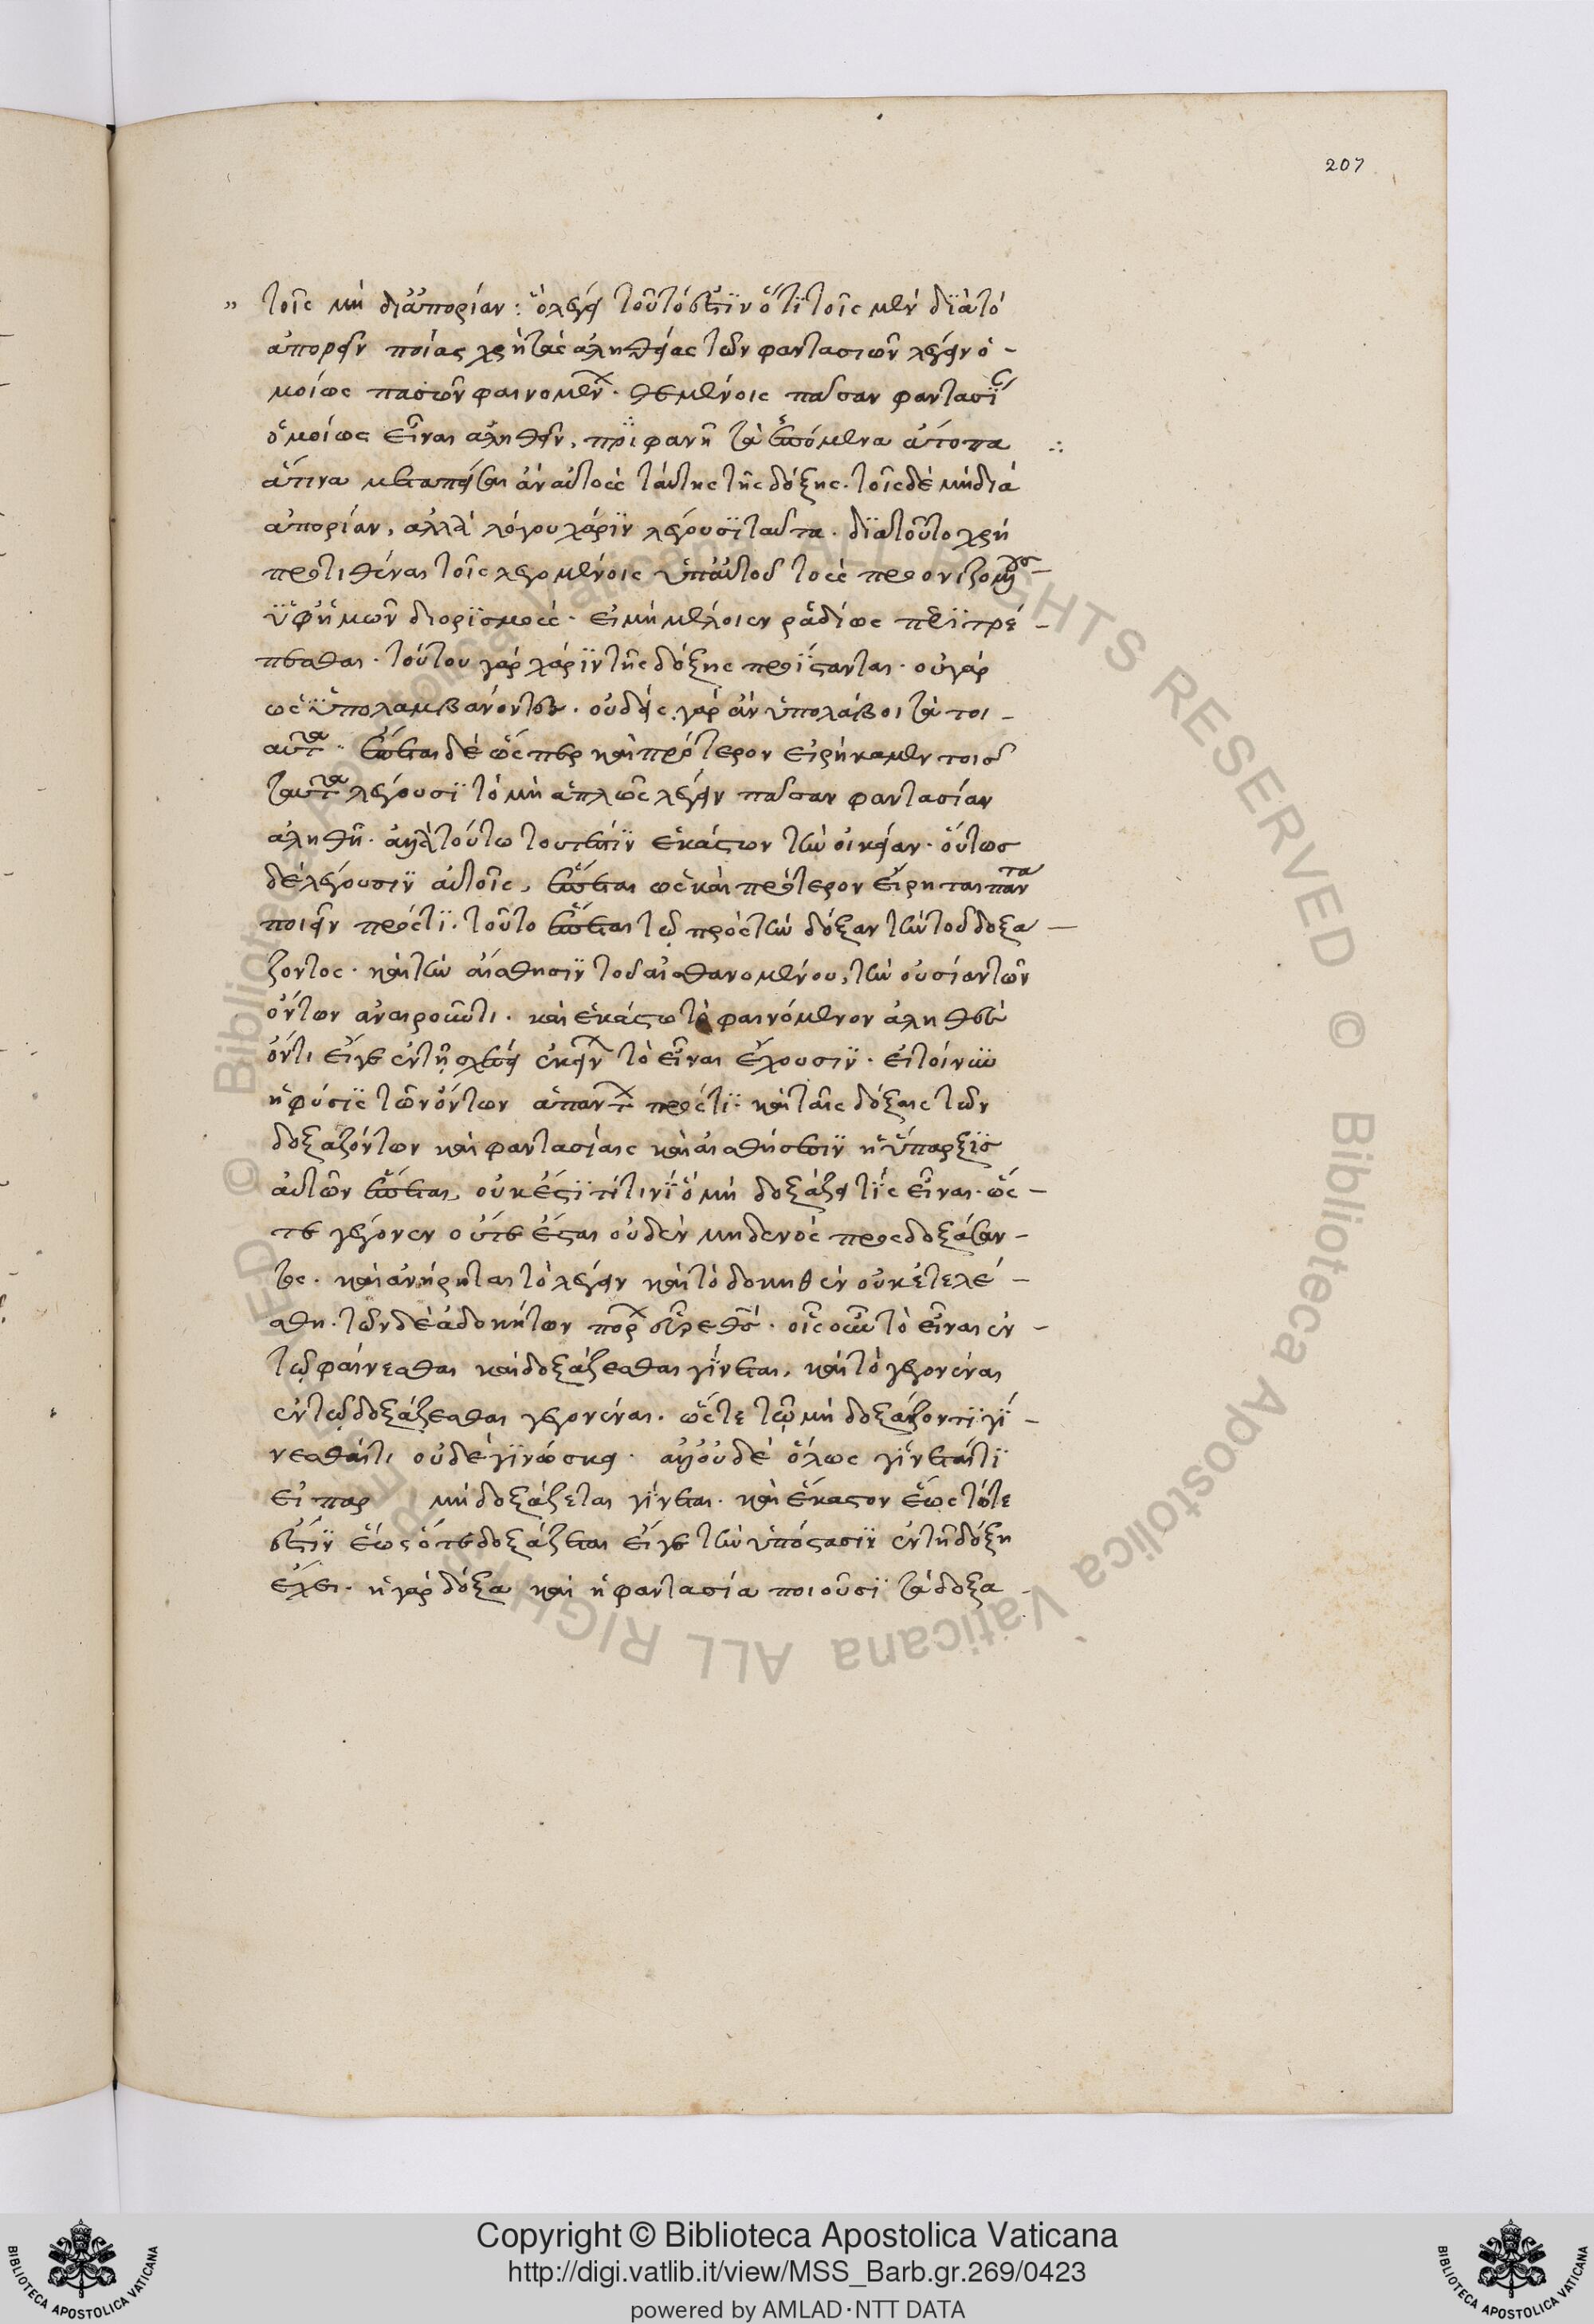 207
" τοῖς μὴ δι' ἀπορίαν : ὃ λέγει τοῦτό ἐστιν ὅτι τοῖς μὲν διὰ τὸ
ἀπορεῖν ποίας χρὴ τὰς ἀληθείας τῶν φαντασιῶν λέγειν ὁ-
μοίως πασῶν φαινομένων. θεμένοις πᾶσαν φαντασίαν
ὁμοίως εἶναι ἀληθῆν, φανῆ τὰ ἑπόμενα ἄτοπα
ἅτινα μεταπείσει ἂν αὐτοὺς ταύτης τῆς δόξης. τοῖς δὲ μὴ διὰ
ἀπορίαν, ἀλλὰ λόγου χάριν λέγουσι ταῦτα. διὰ τοῦτο χρὴ
προστιθέναι τοῖς λεγομένοις ὑπ' αὐτοῦ τοὺς
ὑφ' ἡμῶν διορισμούς. εἰ μὴ μέλλοιεν ῥαδίως περιτρέ-
πεσθαι. τούτου γὰρ χάριν τῆς δόξης προΐστανται. οὐ γὰρ
ὡς ὑπολαμβάνοντες. οὐδεὶς γὰρ ἂν ὑπολάβοι τὰ τοι-
αῦτα. ἕπεται δὲ ὥς περ καὶ πρότερον εἰρήκαμεν τοῖς
ταῦτα λέγουσι τὸ μὴ ἁπλῶς λέγειν πᾶσαν φαντασίαν
ἀληθῆ. ἀλλὰ τούτω τουτέστιν ἑκάστων τὴν οἰκείαν. οὕτως
δὲ λέγουσιν αὐτοῖς, ἕπεται ὡς καὶ πρότερον εἴρηται πάντα
ποιεῖν πρός τι. τοῦτο ἕπεται τῷ πρὸς τὴν δόξαν τὴν τοῦ δοξά-
ζοντος. καὶ τὴν αἴσθησιν τοῦ αἰσθανομένου, τὴν οὐσίαν τῶν
ὄντων ἀναιροῦντι. καὶ ἑκάστω τὸ φαινόμενον ἀληθὲς
ὄντι εἴγε ἐν τῇ σχέσει ἐκείνων τὸ εἶναι ἔχουσιν. εἰ τοίνυν
ἡ φύσις τῶν ὄντων ἁπάντων πρός τι. καὶ ταῖς δόξαις τῶν
δοξαζόντων καὶ φαντασίαις καὶ αἰσθήσεσιν ἡ ὕπαρξις
αὐτῶν ἕπεται, οὐκ ἔστι τί τινι ὃ μὴ δοξάζει τίς εἶναι. ὥς-
τε γέγονεν οὔτε ἔσται οὐδὲν μηδενὸς προδοξάσαν-
τος. καὶ ἀνήρηται τὸ λέγειν καὶ τὸ δοκηθὲν οὐκ ἐτελέ-
σθη. τῶν δὲ ἀδοκήτων πόρον εὗρε θεός. οἷς οὖν τὸ εἶναι ἐν-
τῷ φαίνεσθαι καὶ δοξάζεσθαι γίνεται, καὶ τὸ γεγονέναι
ἐν τῷ δοξάζεσθαι γεγονέναι. ὥστε τῷ μὴ δοξάζοντι γί-
νεσθαί τι οὐδὲ γινώσκει. ἀλλ' οὐδὲ ὅλως γίνεταί τι
εἰ παρ μὴ δοξάζεται γίνεται. καὶ ἕκαστον ἕως τότε
ἐστὶν ἕως ὅτε δοξάζεται εἴγε τὴν ὑπόστασιν ἐν τῇ δόξῃ
ἔχει. ἡ γὰρ δόξα καὶ ἡ φαντασία ποιοῦσι τὰ δοξα-
© Biblioteca Apostolica Vaticana ALL RIGHTS RESERVED
Copyright © Biblioteca Apostolica Vaticana
http://digi.vatlib.it/view/MSS_Barb.gr.269/0423
powered by AMLAD·NTT DATA
BIBLIOTECA APOSTOLICA VATICANA
BIBLIOTECA APOSTOLICA VATICANA